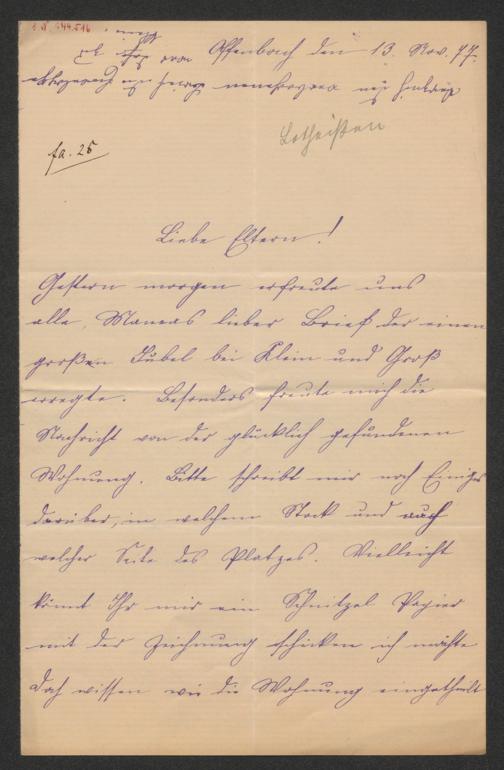 I.N. 444.516
Offenbach den 13. Nov. 77.
Lotheißen
fa. 25
Liebe Eltern!
Gestern morgen erfreute uns
alle, Mamas lieber Brief der einen
großen Jubel bei Klein und Groß
erregte. Besonders freute mich die
Nachricht von der glücklich gefundenen
Wohnung. Bitte schreibt mir noch Einiges
darüber, in welchem Stock und auf
welcher Seite des Platzes. Vielleicht
könnt Ihr mir ein Schnitzel Papier
mit der Zeichnung schicken ich möchte
doch wissen wie die Wohnung eingetheilt